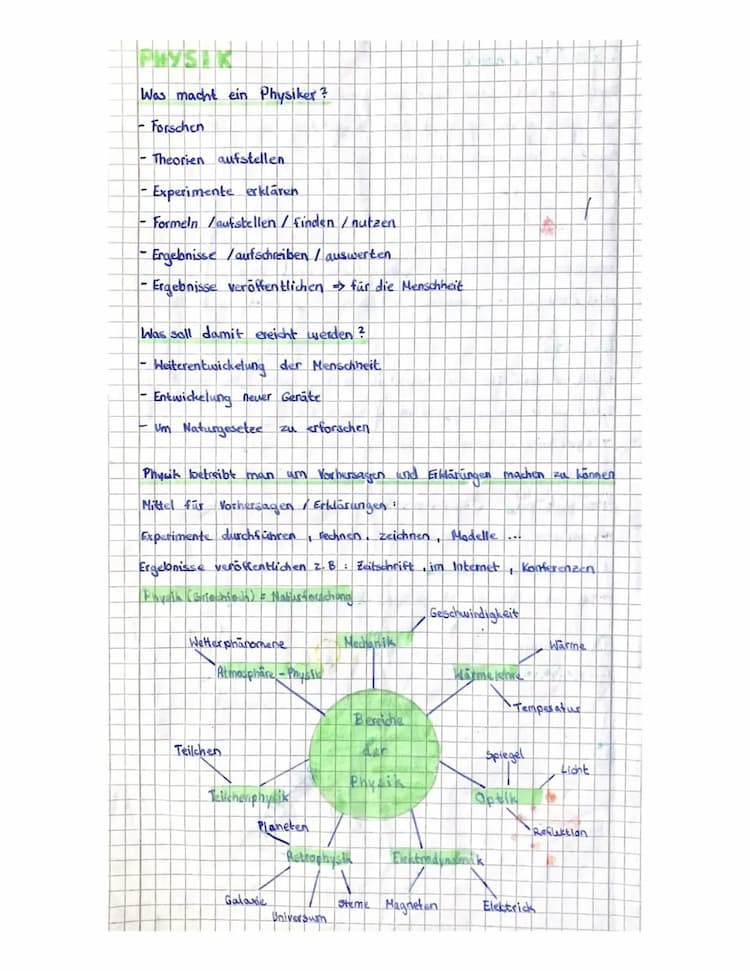 PHYSIK
Was macht ein Physiker?
- Forschen
- Theorien aufstellen
- Experimente erklären
- Formeln /aufstellen / finden / nutzen
- Ergebnisse /aufschreiben / auswerten
- Ergebnisse veröffentlichen => für die Menschheit
Was soll damit ereicht werden?
- Weiterentwickelung der Menschheit
- Entwickelung neuer Geräte
- Um Naturgesetze zu erforschen
Physik betreibt man um Vorhersagen und Erklärungen machen zu können
Mittel für Vorhersagen / Erklärungen:
Experimente durchführen, rechnen, zeichnen, Modelle ...
Ergebnisse veröffentlichen z.B: Zeitschrift, im Internet, Konferenzen
Physik (Griechisch) = Naturforschung
Geschwindigkeit
Wetterphänomene
Mechanik
Wärme
Atmosphäre-Physik
Wärmelehre
Temperatur
Bereiche
der
Physik
Teilchen
Spiegel
Licht
Teilchenphysik
Optik
Planeten
Refluktion
Astrophysik
Elektrodynamik
Galaxie
Universum
Sterne
Magneten
Elektrick